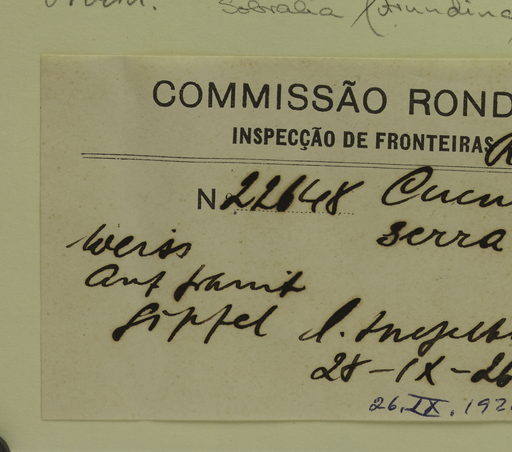 Sobralia (Arundina
COMMISSÃO ROND
INSPECÇÃO DE FRONTEIRAS
N. 22648
serra
weiss
Auf
Gipfel l.
28-IX-26
26.IX.192